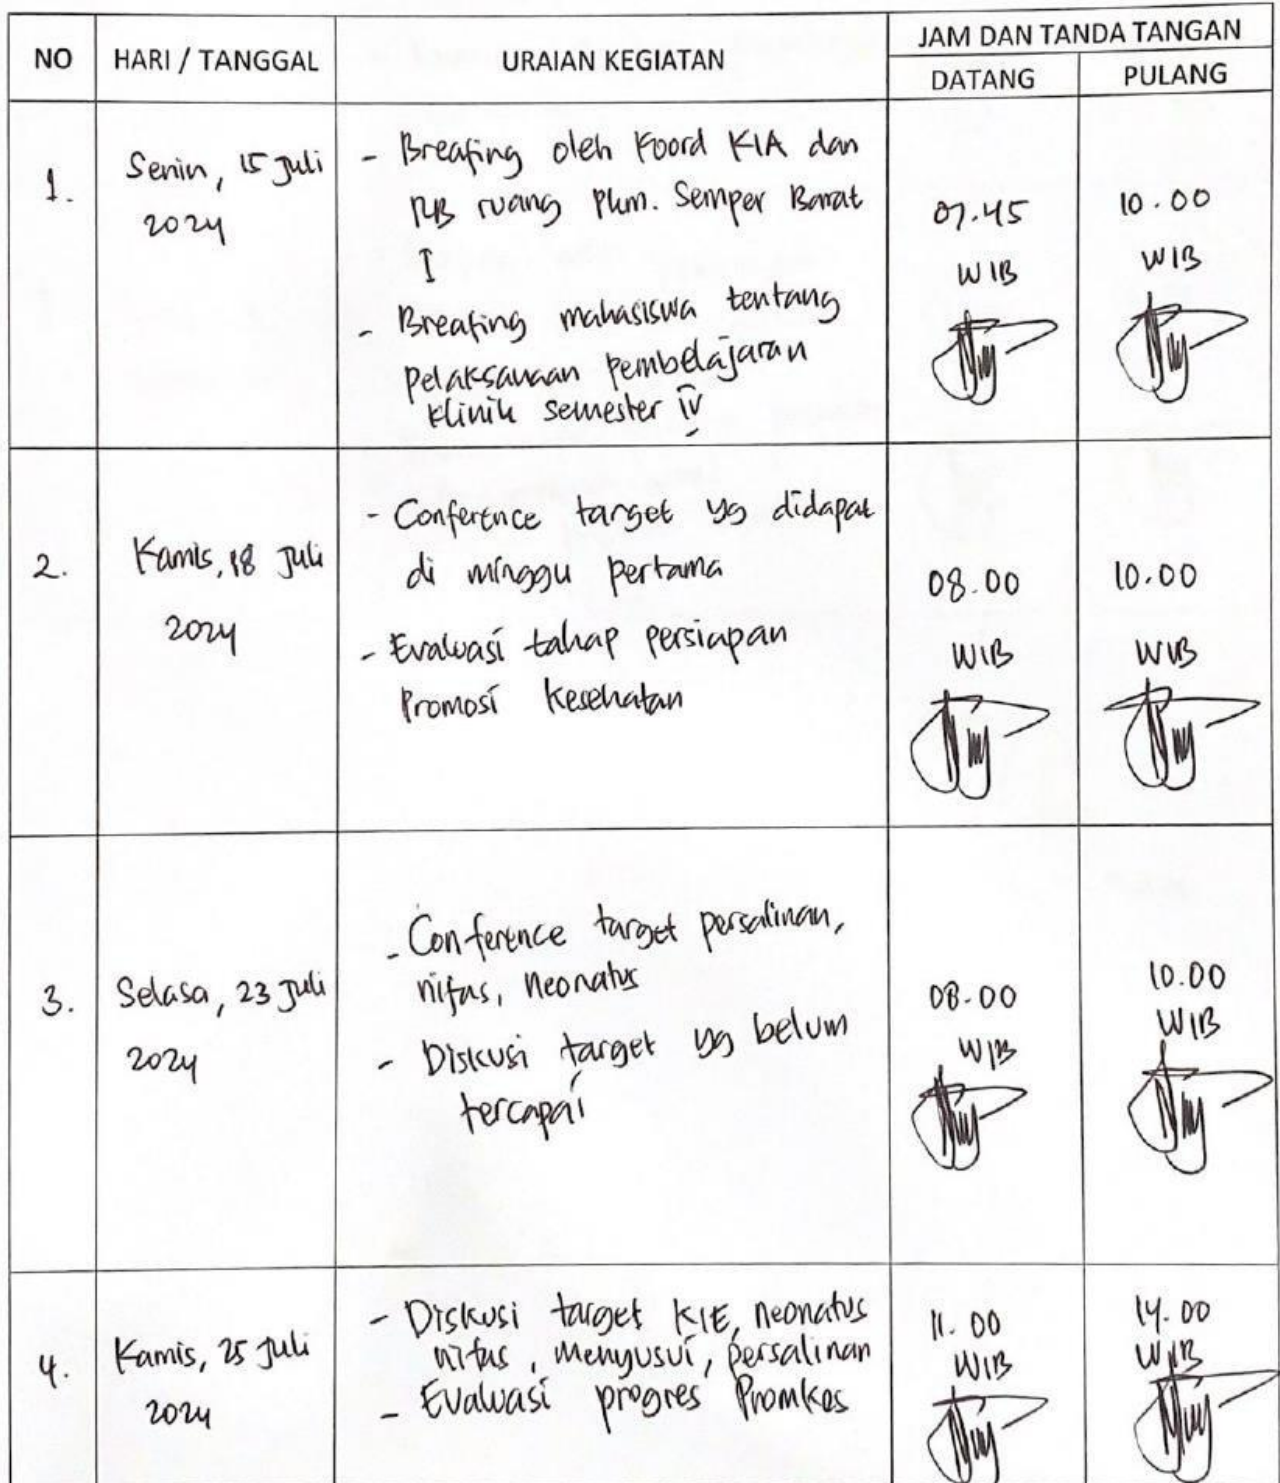 NO HARI / TANGGAL URAIAN KEGIATAN JAM DAN TANDA TANGAN
DATANG PULANG
1.
Senin, 15 Juli
2024
- Breafing oleh Koord KIA dan
RB ruang Pkm. Semper Barat
I
- Breafing mahasiswa tentang
pelaksanaan pembelajaran
klinik semester IV
07.45
WIB
10.00
WIB
2.
Kamis, 18 Juli
2024
- Conference target yg didapat
di minggu pertama
- Evaluasi tahap persiapan
Promosi Kesehatan
08.00
WIB
10.00
WIB
3.
Selasa, 23 Juli
2024
- Conference target persalinan,
nifas, neonatus
- Diskusi target yg belum
tercapai
08.00
WIB
10.00
WIB
4.
Kamis, 25 Juli
2024
- Diskusi target KIE, neonatus
nifas, menyusui, persalinan
- Evaluasi progres Promkes
11.00
WIB
14.00
WIB